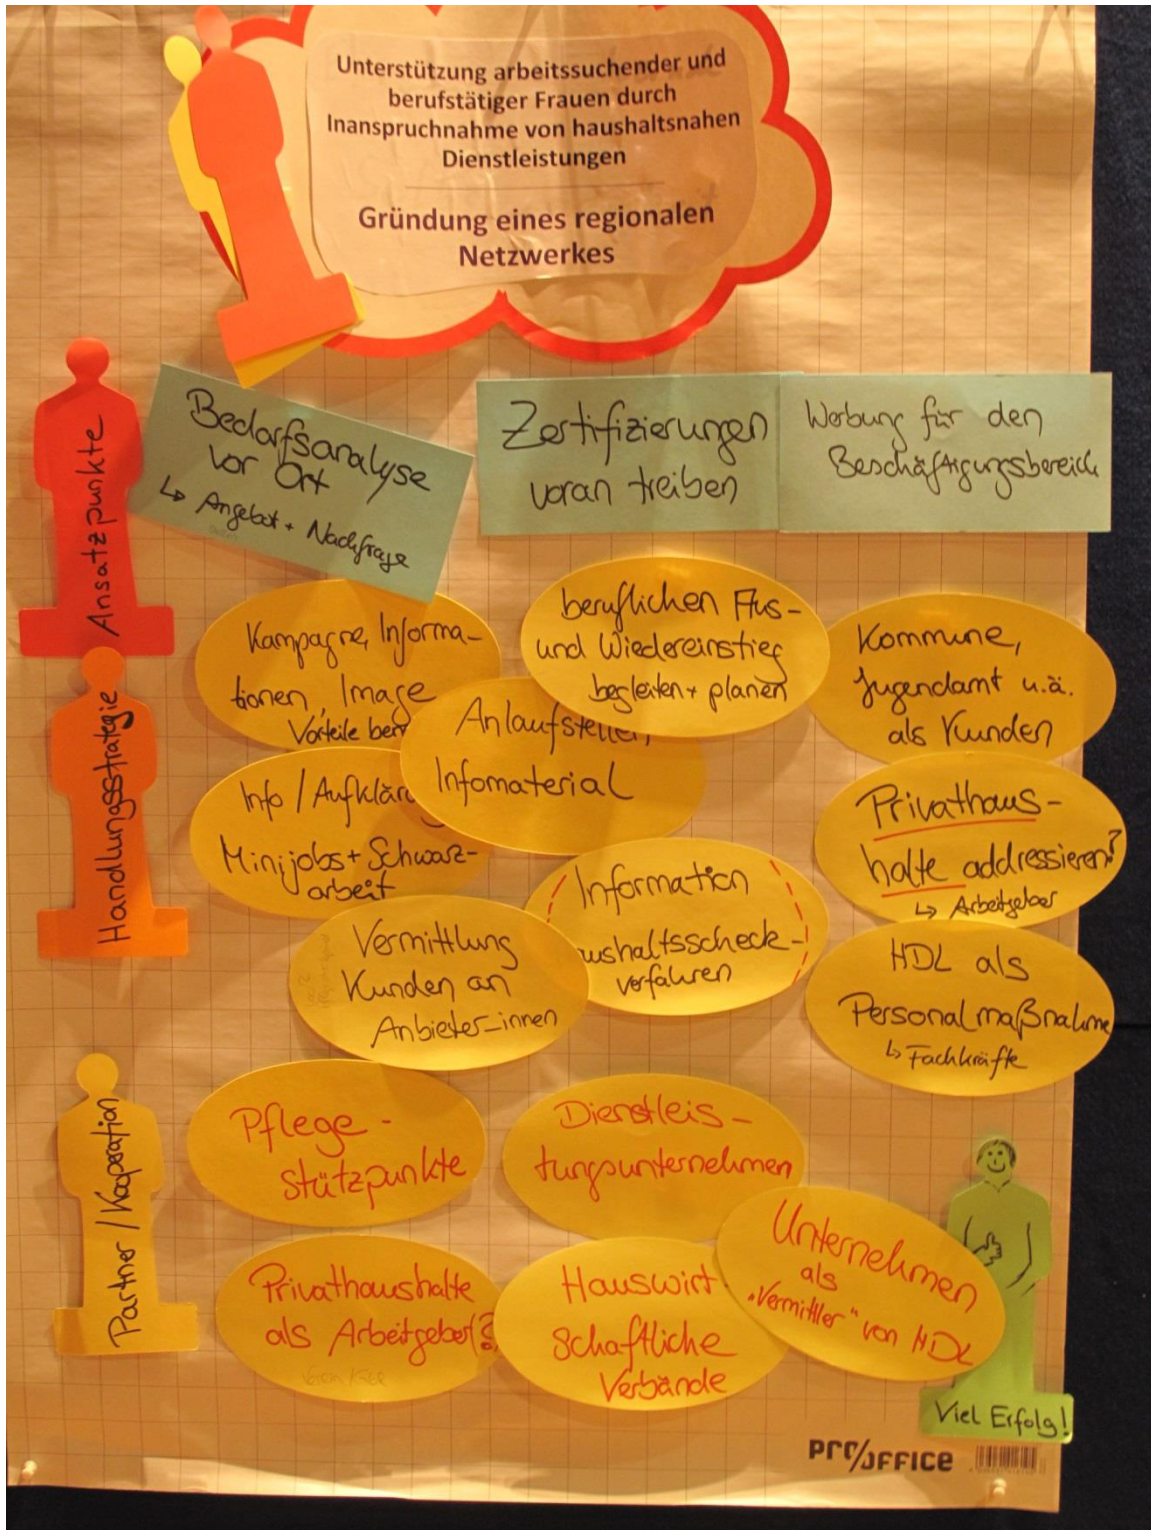 Unterstützung arbeitssuchender und
berufstätiger Frauen durch
Inanspruchnahme von haushaltsnahen
Dienstleistungen
Gründung eines regionalen
Netzwerkes
Ansatzpunkte
Bedarfsanalyse
vor Ort
↳ Angebot + Nachfrage
Zertifizierungen
voran treiben
Werbung für den
Beschäftigungsbereich
Handlungsstrategie
Kampagne, Informa-
tionen, Image
Vorteile
beruflichen Aus-
und Wiedereinstieg
begleiten + planen
Kommune,
Jugendamt u.ä.
als Kunden
Anlaufstellen,
Infomaterial
Info / Aufklärung
Minijobs + Schwarz-
arbeit
Privathaus-
halte addressieren?
↳ Arbeitgeber
Information
aushaltsscheck-
verfahren
Vermittlung
Kunden an
Anbieter_innen
HDL als
Personalmaßnahme
↳ Fachkräfte
Partner / Kooperation
Pflege-
stützpunkte
Dienstleis-
tungsunternehmen
Unternehmen
als
"Vermittler" von HDL
Privathaushalte
als Arbeitgeber(?)
Hauswirt
schaftliche
Verbände
Viel Erfolg!
PRO/OFFICE